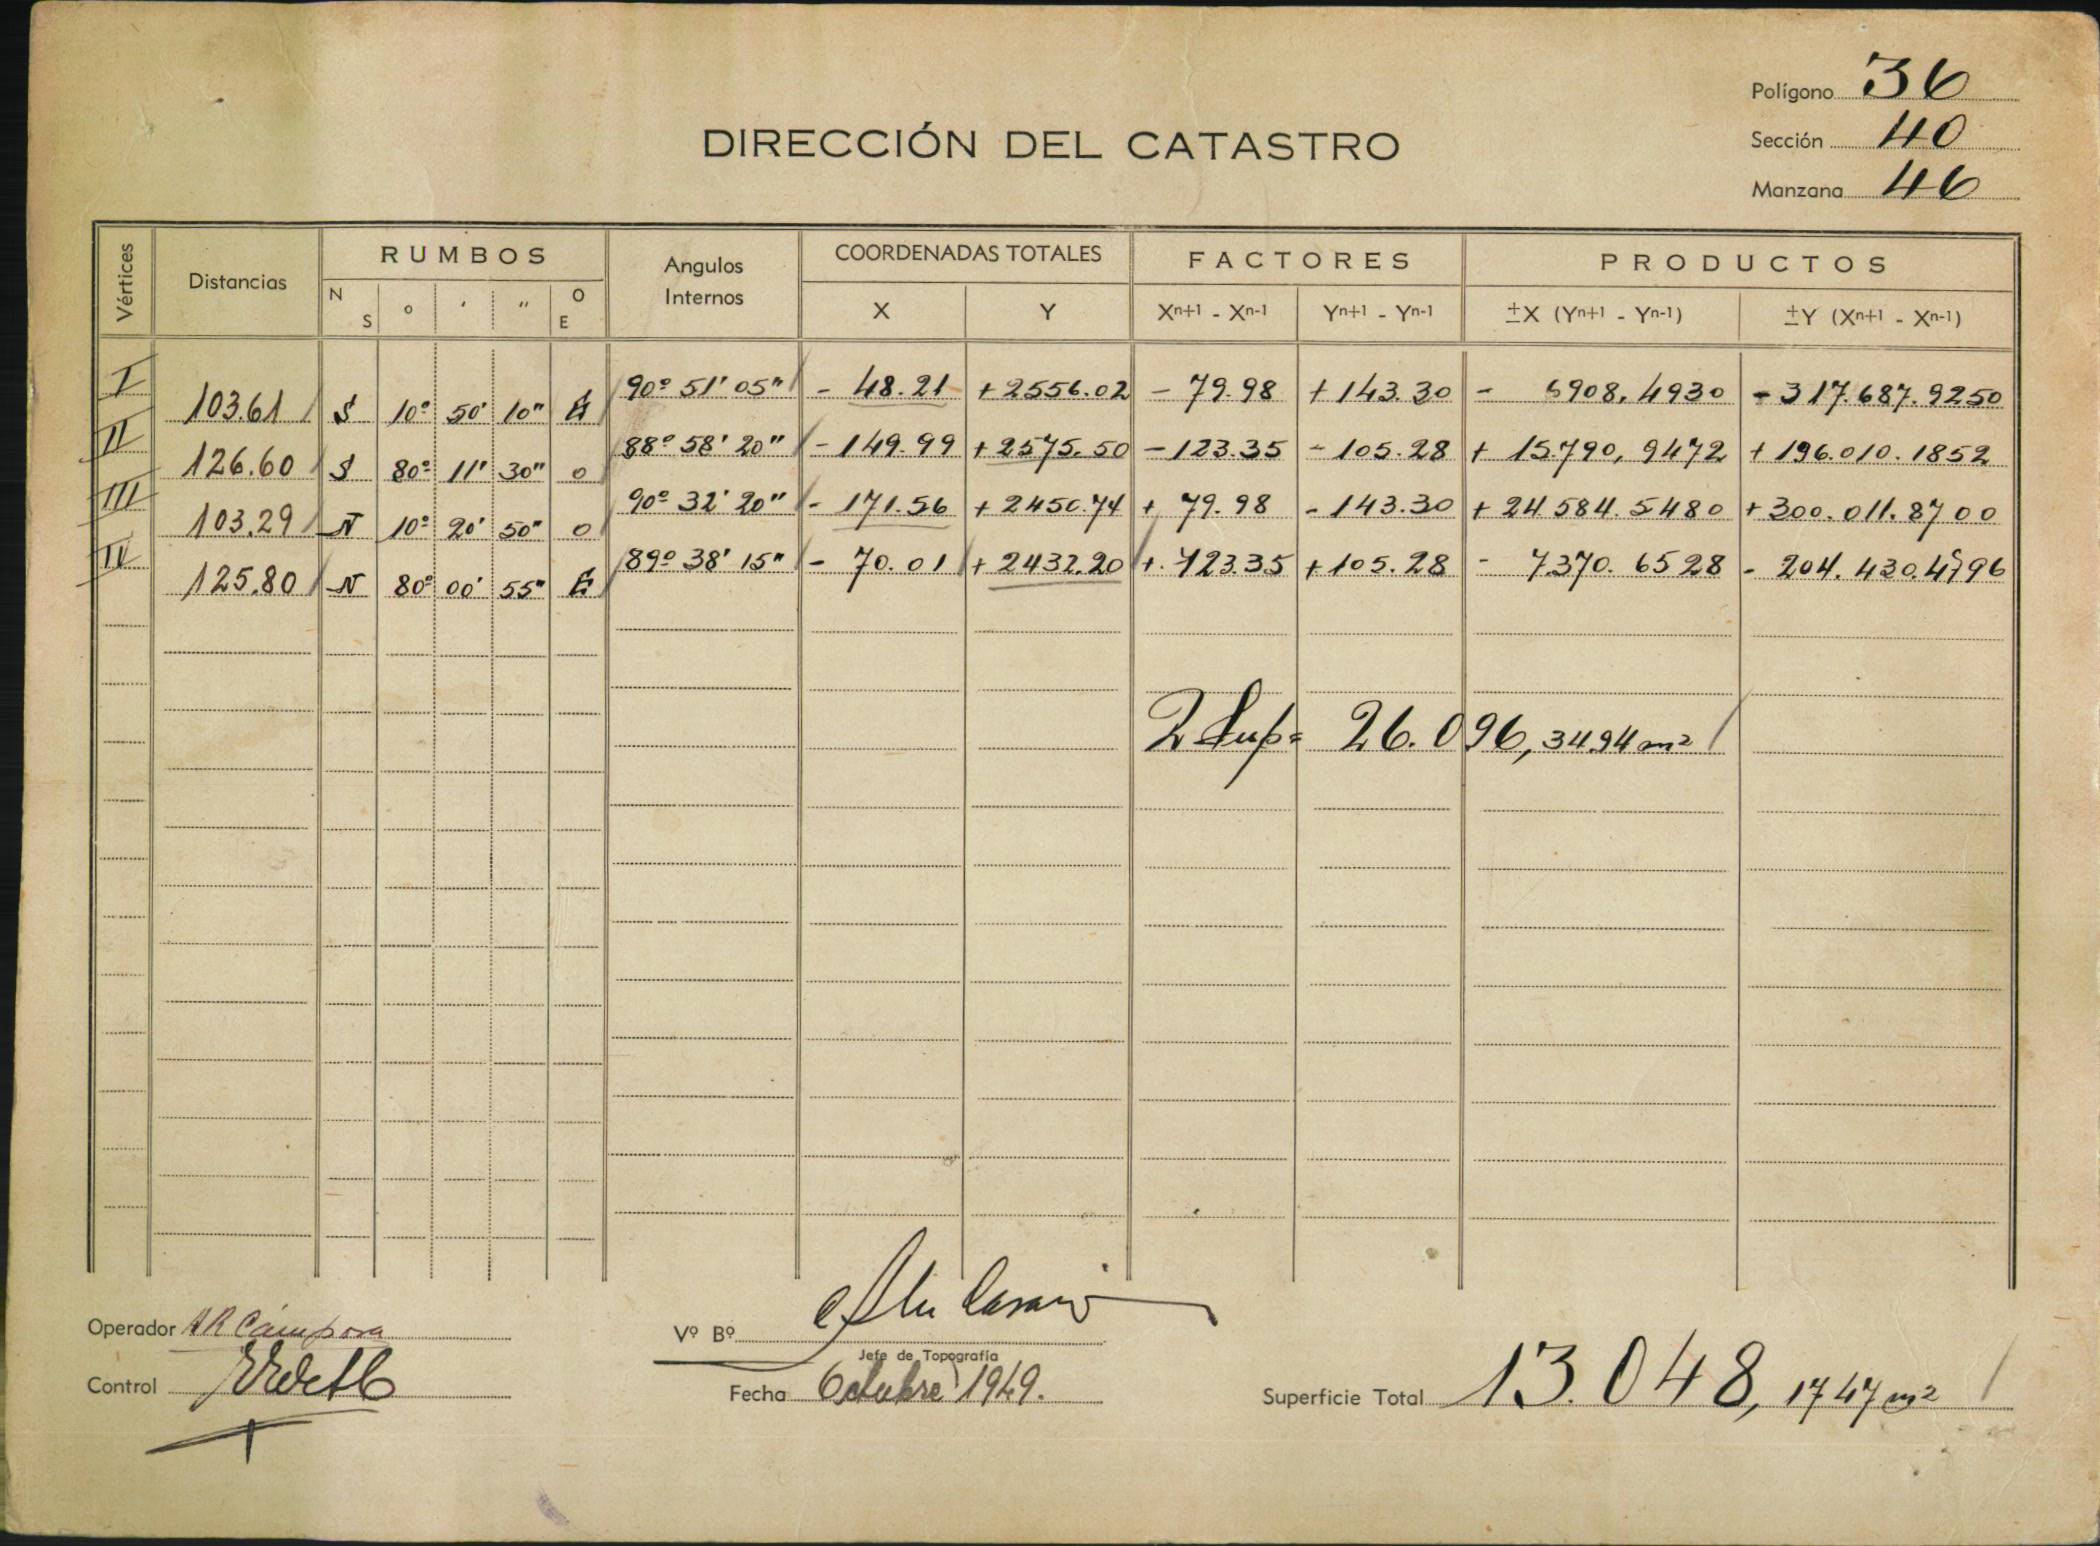 Polígono 36
DIRECCIÓN DEL CATASTRO
Sección 40
Manzana 46
Vértices Distancias RUMBOS Angulos Internos COORDENADAS TOTALES FACTORES PRODUCTOS
N S o ' " O E X Y Xn+1 - Xn-1 Yn+1 - Yn-1 ±X (Yn+1 - Yn-1) ±Y (Xn+1 - Xn-1)
I 90º 51' 05" - 48.21 + 2556.02 - 79.98 + 143.30 - 6908,4930 - 317.687.9250
103.61 S 10º 50' 10" E
II 88º 58' 20" - 149.99 + 2575.50 - 123.35 - 105.28 + 15.790,9472 + 196.010.1852
126.60 S 80º 11' 30" O
III 90º 32' 20" - 171.56 + 2450.74 + 79.98 - 143.30 + 24.584.5480 + 300.011.8700
103.29 N 10º 20' 50" O
IV 89º 38' 15" - 70.01 + 2432.20 + 123.35 + 105.28 - 7.370.6528 - 204.430.4796
125.80 N 80º 00' 55" E
2 Sup= 26.096,3494 m²
Operador A R Cámpora
Vº Bº
Jefe de Topografía
Control
Fecha Octubre 1949.
Superficie Total 13.048,1747 m²